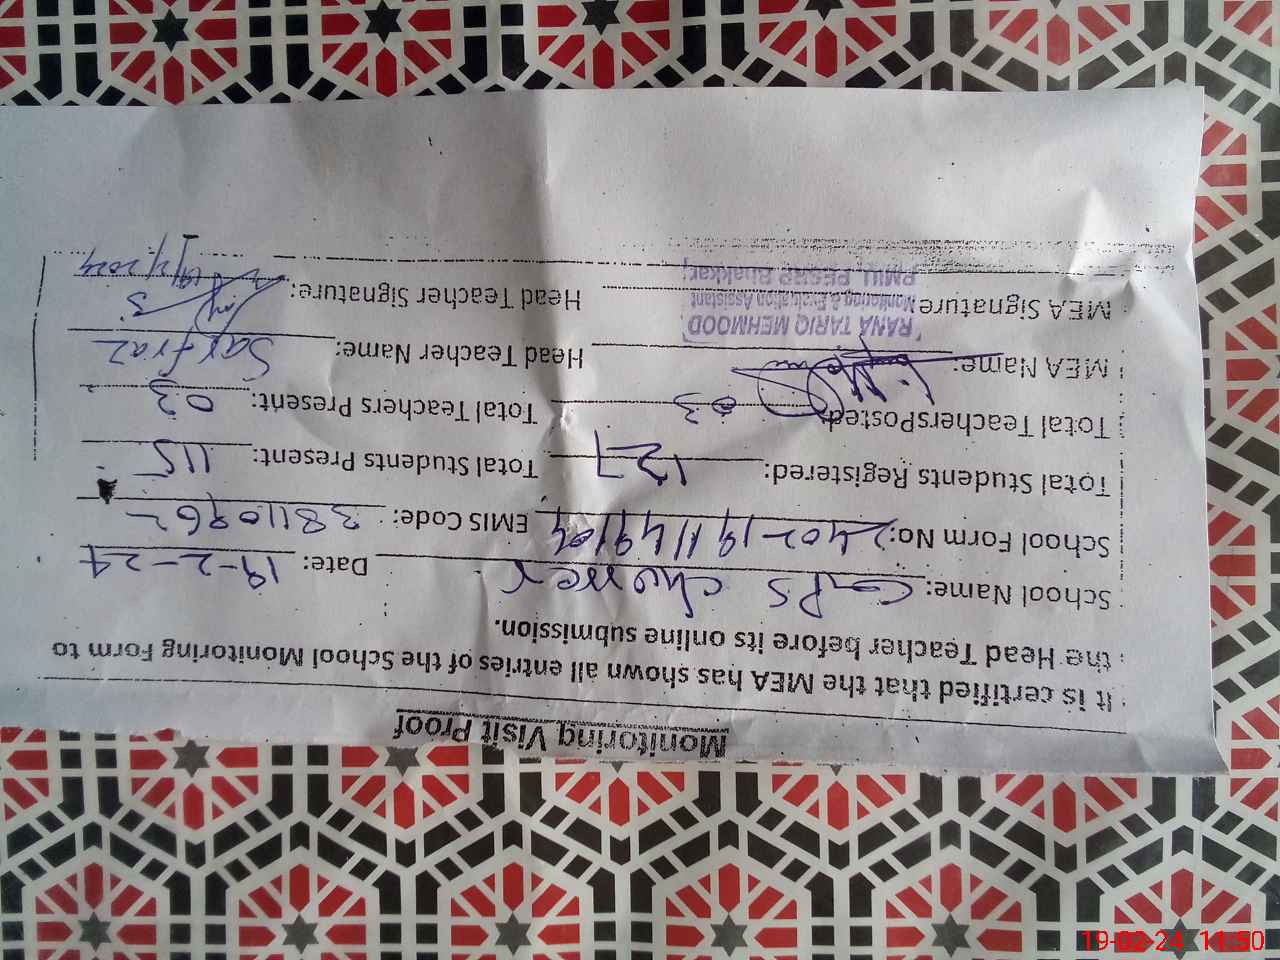 Monitoring Visit Proof
It is certified that the MEA has shown all entries of the School Monitoring Form to
the Head Teacher before its online submission.
School Name: GPS Date: 19-2-24
School Form No: EMIS Code: 38110962
Total Students Registered: 127 Total Students Present: 115
Total TeachersPosted: 03 Total Teachers Present: 03
MEA Name: Head Teacher Name: Sarfraz
RANA TARIQ MEHMOOD
Monitoring & Evaluation Assistant
PMIU, PESRP Bhakkar
MEA Signature Head Teacher Signature: 19/2/2024
19-02-24 11:50